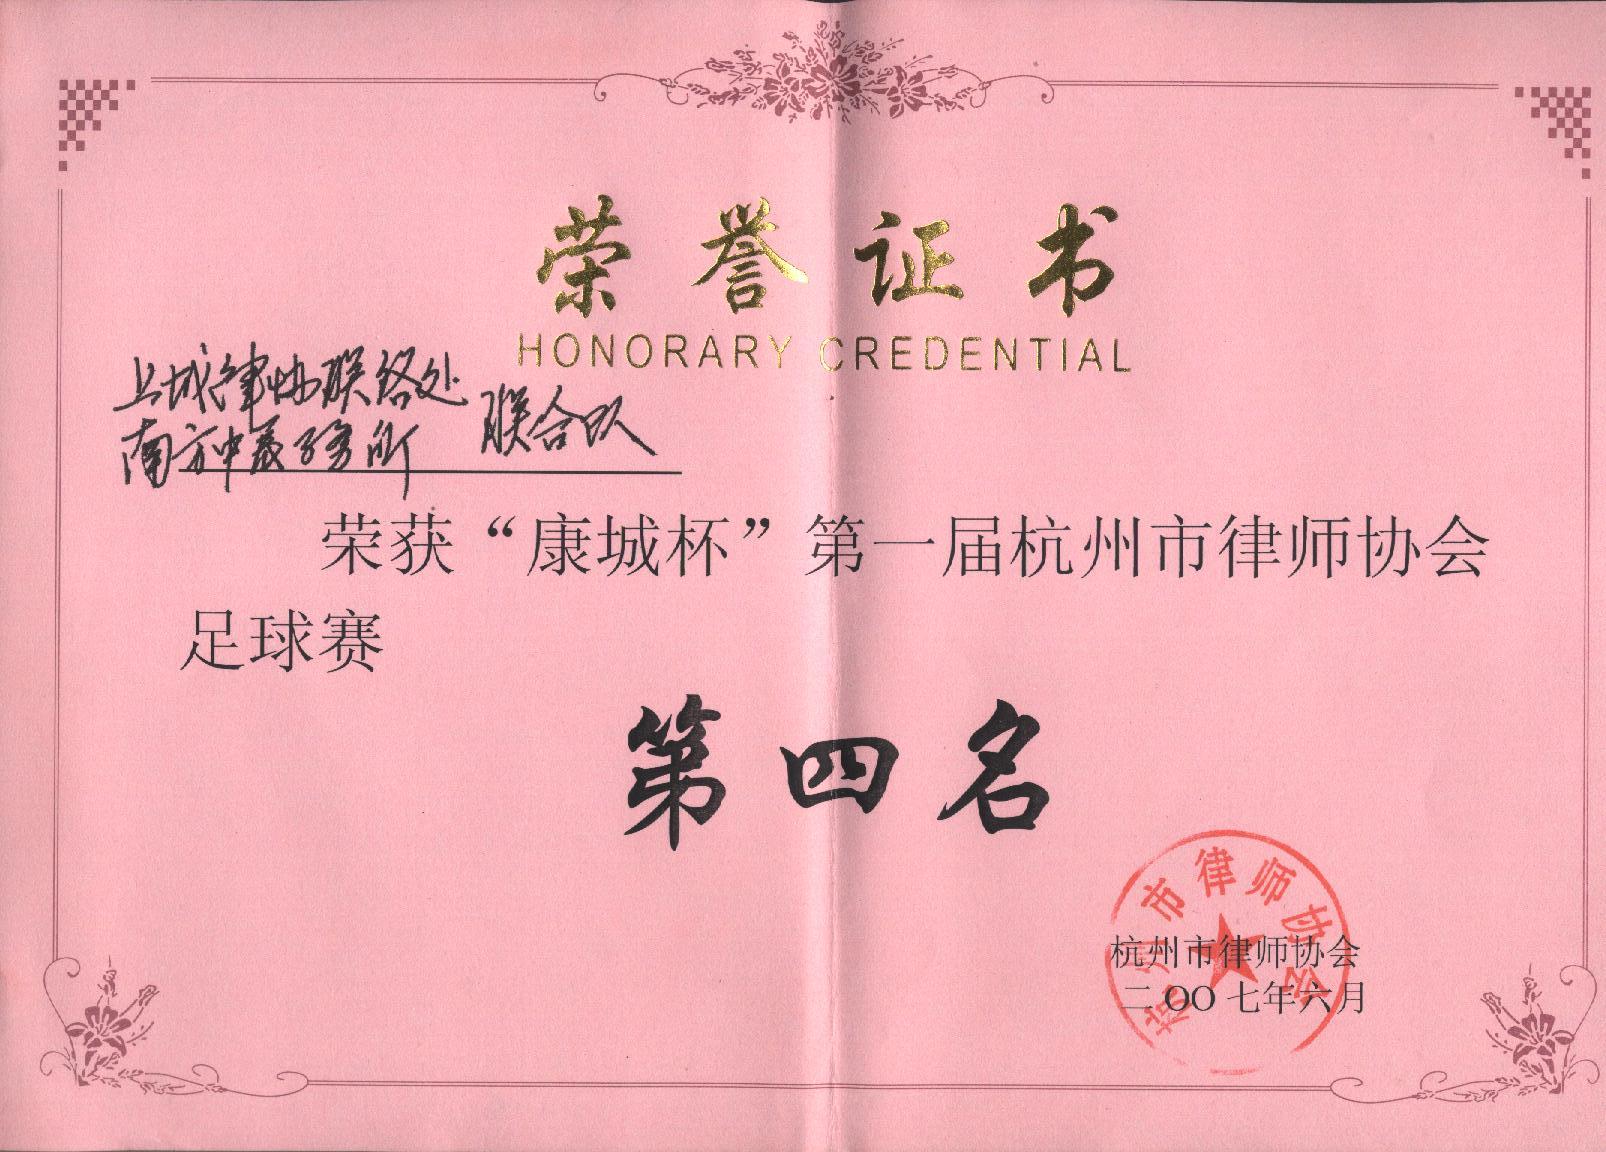 荣誉证书
HONORARY CREDENTIAL
上城律协联络处
南方中辰事务所 联合队
荣获“康城杯”第一届杭州市律师协会
足球赛
第四名
杭州市律师协会
杭州市律师协会
二OO七年六月